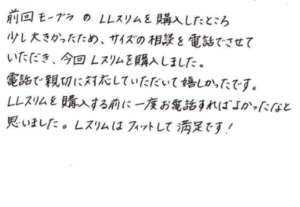 前回 モーブラ の LLスリムを購入したところ
少し大きかったため、サイズの相談を電話でさせて
いただき、今回 Lスリムを購入しました。
電話で親切に対応していただいて嬉しかったです。
LLスリムを購入する前に一度お電話すればよかったなと
思いました。Lスリムはフィットして満足です!